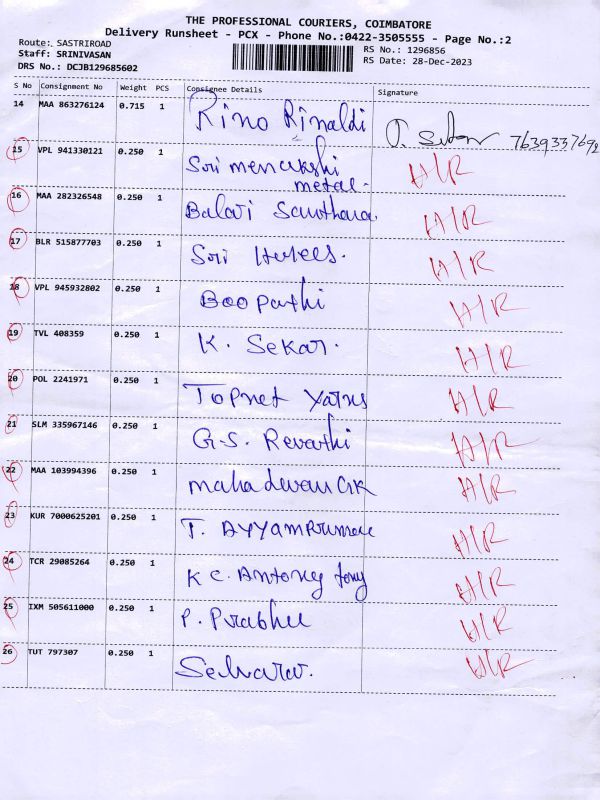 THE PROFESSIONAL COURIERS, COIMBATORE
Delivery Runsheet - PCX - Phone No.:0422-3505555 - Page No.:2
Route: SASTRIROAD
Staff: SRINIVASAN
DRS No.: DCJB129685602
RS No.: 1296856
RS Date: 28-Dec-2023
S No Consignment No Weight PCS Consignee Details Signature
14 MAA 863276124 0.715 1 Rino Rinaldi
15 VPL 941330121 0.250 1 Sri menakshi metal. H/R
16 MAA 282326548 0.250 1 Balaji H/R
17 BLR 515877703 0.250 1 Sri H/R
18 VPL 945932802 0.250 1 Boopathi H/R
19 TVL 408359 0.250 1 K. Sekar. H/R
20 POL 2241971 0.250 1 Topnet Yarns H/R
21 SLM 335967146 0.250 1 G.S. Revathi H/R
22 MAA 103994396 0.250 1 mahadevan H/R
23 KUR 7000625201 0.250 1 T. H/R
24 TCR 29085264 0.250 1 K C. Antony H/R
25 IXM 505611000 0.250 1 P. Prabhu H/R
26 TUT 797307 0.250 1 H/R